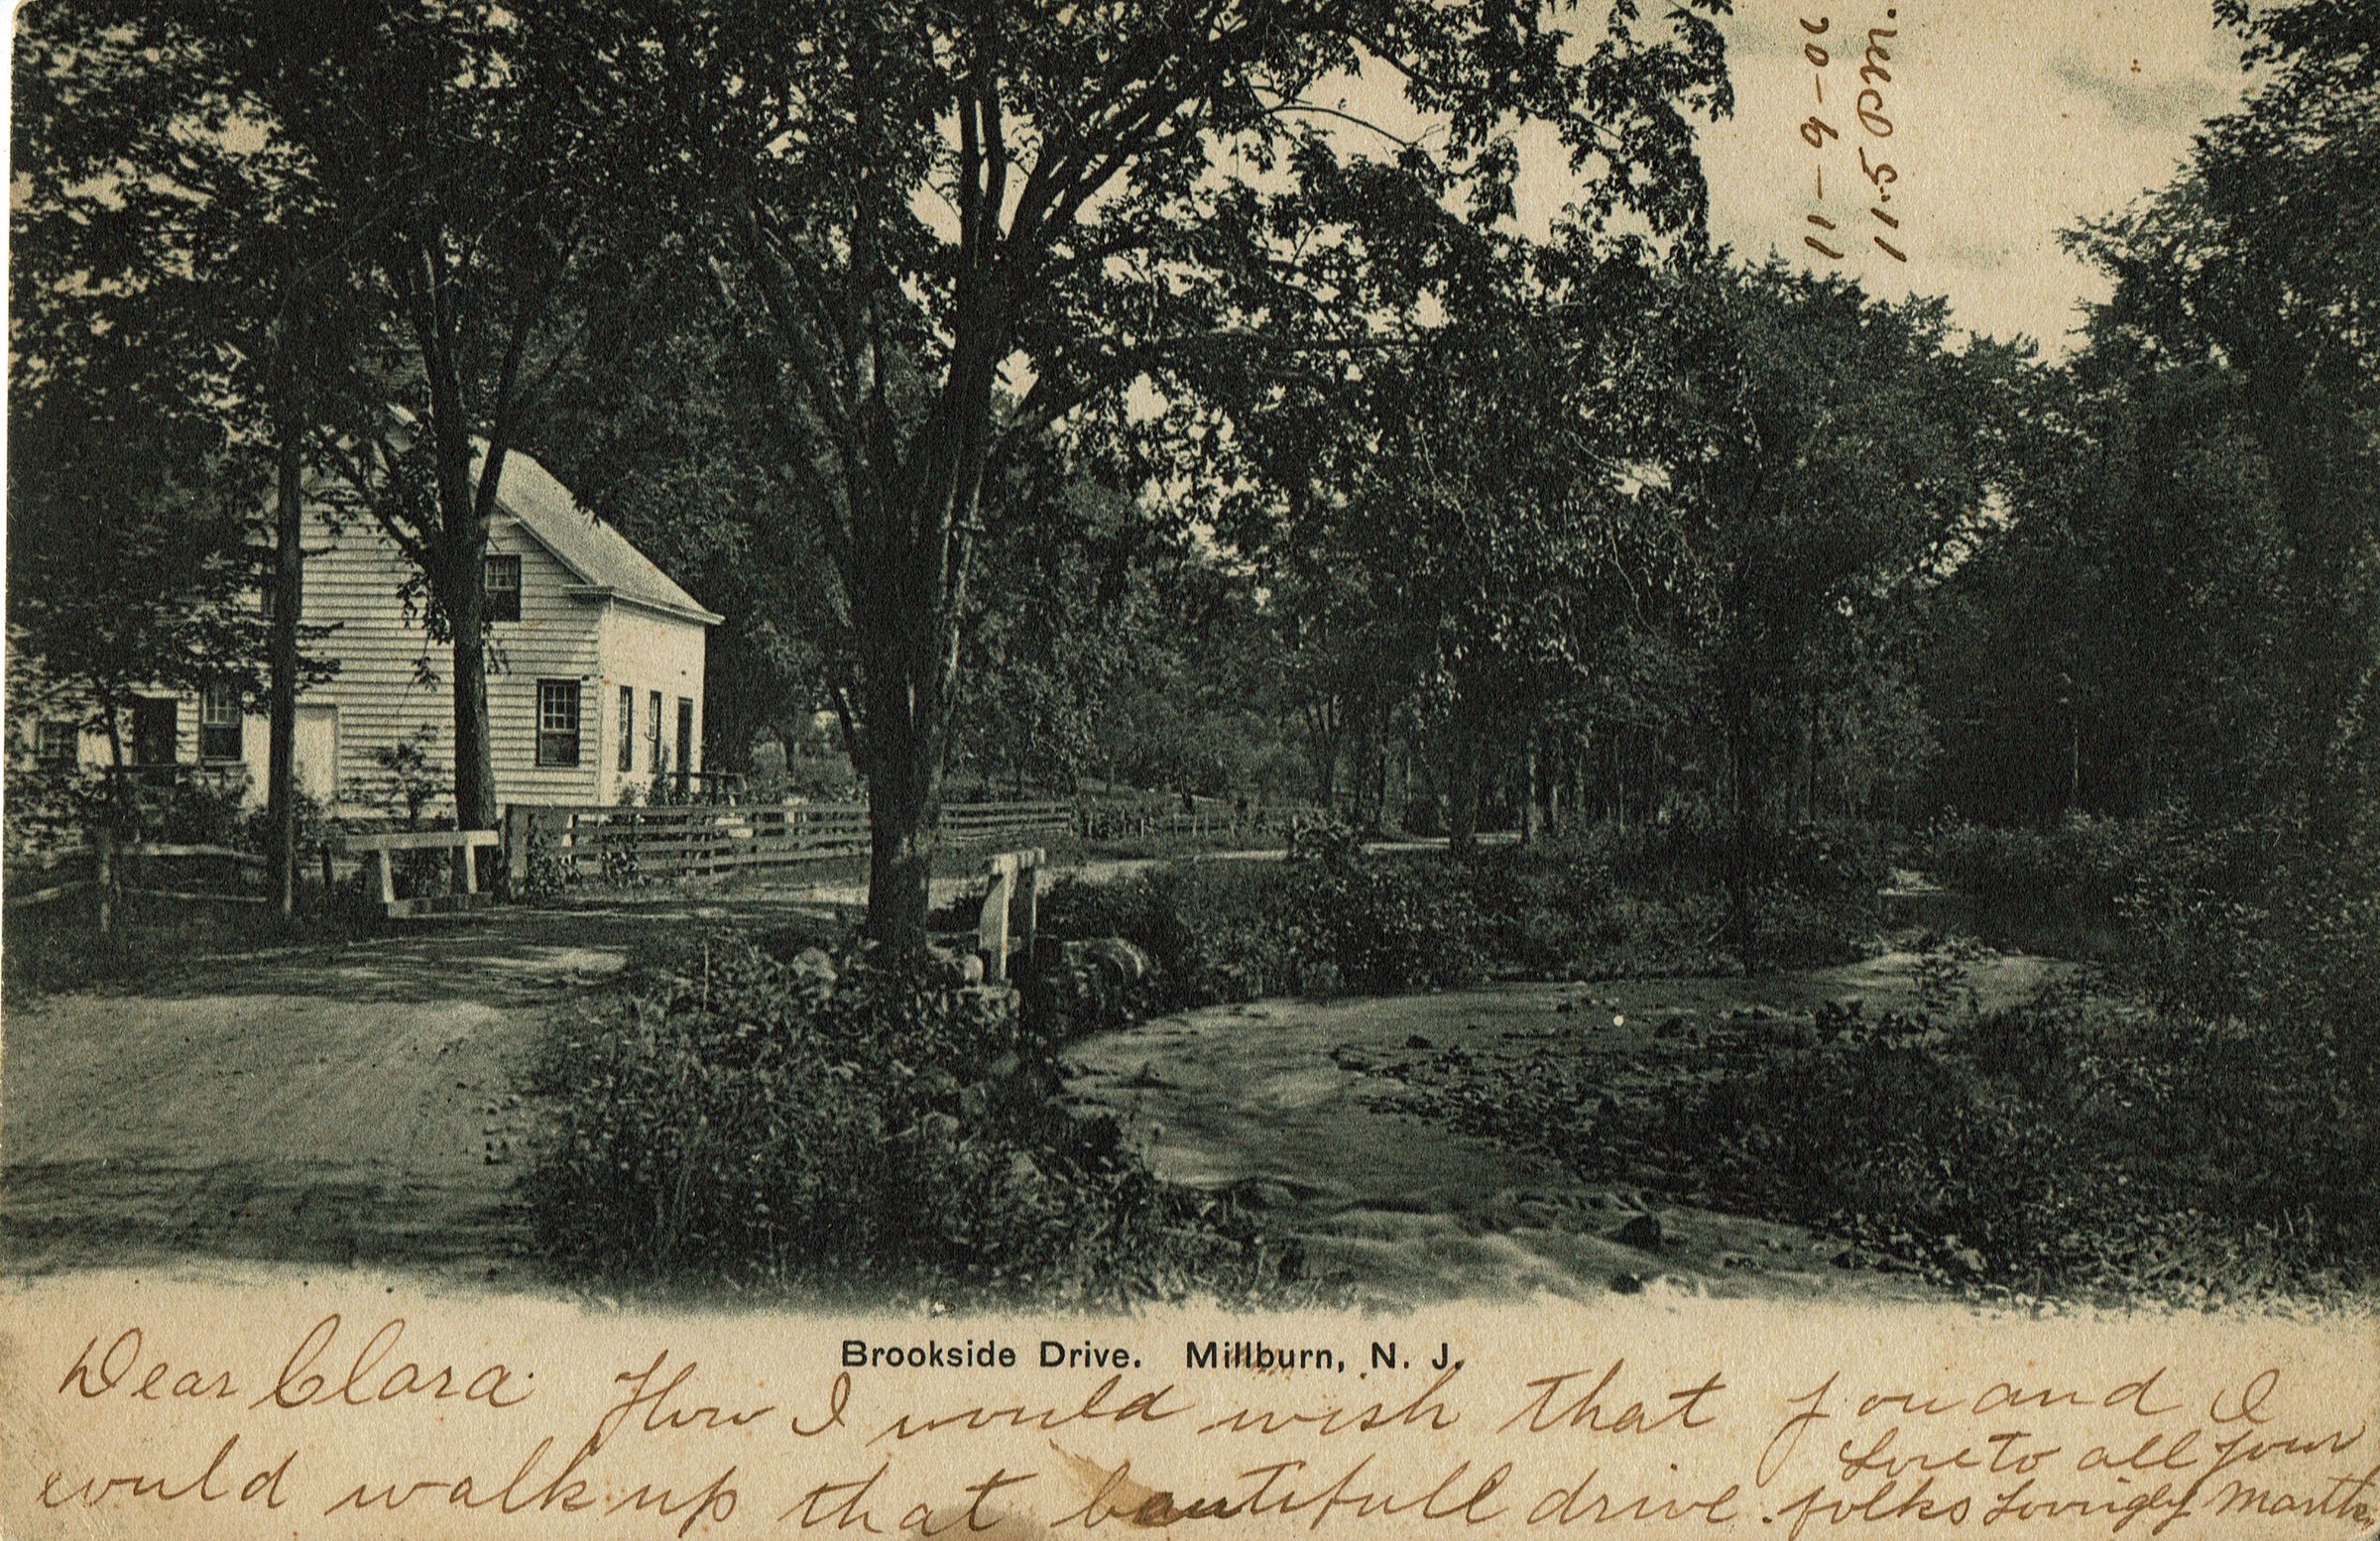 11-9-05
11.50 P.M.
Brookside Drive. Millburn, N. J.
Dear Clara. How I would wish that you and I
could walk up that beautifull drive.
Love to all your
folks Lovingly Martha